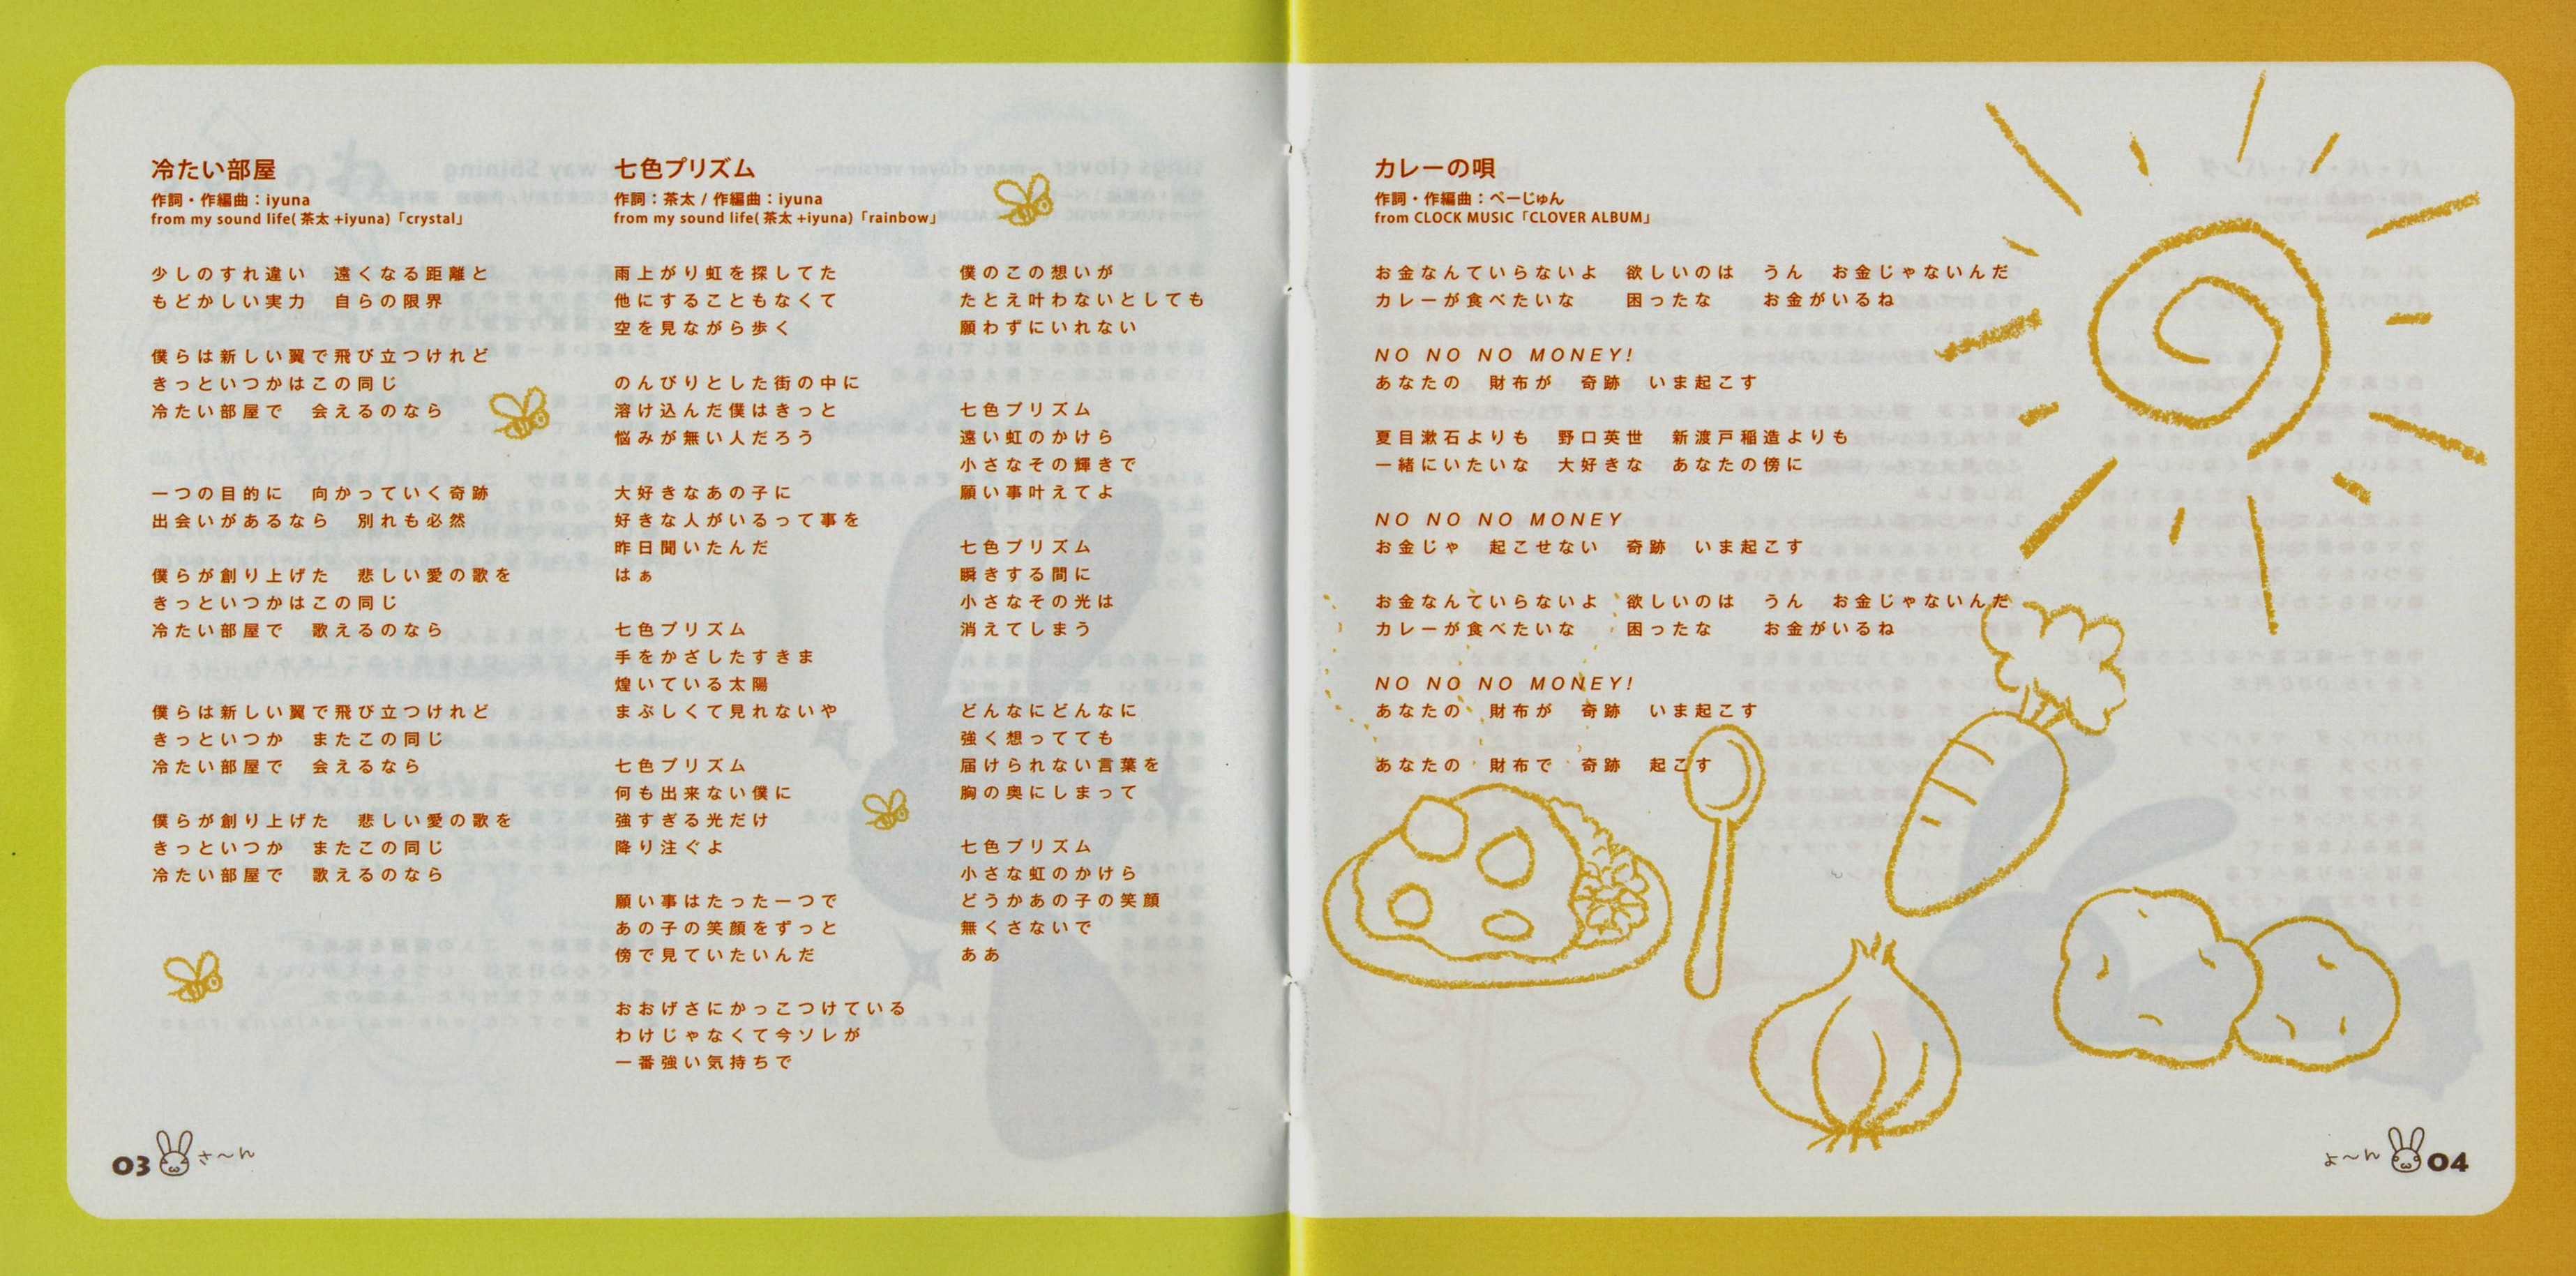 冷たい部屋
作詞・作編曲：iyuna
from my sound life(茶太+iyuna)「crystal」
少しのすれ違い　遠くなる距離と
もどかしい実力　自らの限界
僕らは新しい翼で飛び立つけれど
きっといつかはこの同じ
冷たい部屋で　会えるのなら
一つの目的に　向かっていく奇跡
出会いがあるなら　別れも必然
僕らが創り上げた　悲しい愛の歌を
きっといつかはこの同じ
冷たい部屋で　歌えるのなら
僕らは新しい翼で飛び立つけれど
きっといつか　またこの同じ
冷たい部屋で　会えるなら
僕らが創り上げた　悲しい愛の歌を
きっといつか　またこの同じ
冷たい部屋で　歌えるのなら
七色プリズム
作詞：茶太 / 作編曲：iyuna
from my sound life(茶太+iyuna)「rainbow」
雨上がり虹を探してた
他にすることもなくて
空を見ながら歩く
のんびりとした街の中に
溶け込んだ僕はきっと
悩みが無い人だろう
大好きなあの子に
好きな人がいるって事を
昨日聞いたんだ
はぁ
七色プリズム
手をかざしたすきま
煌いている太陽
まぶしくて見れないや
七色プリズム
何も出来ない僕に
強すぎる光だけ
降り注ぐよ
願い事はたった一つで
あの子の笑顔をずっと
傍で見ていたいんだ
おおげさにかっこつけている
わけじゃなくて今ソレが
一番強い気持ちで
僕のこの想いが
たとえ叶わないとしても
願わずにいれない
七色プリズム
遠い虹のかけら
小さなその輝きで
願い事叶えてよ
七色プリズム
瞬きする間に
小さなその光は
消えてしまう
どんなにどんなに
強く想ってても
届けられない言葉を
胸の奥にしまって
七色プリズム
小さな虹のかけら
どうかあの子の笑顔
無くさないで
ああ
03 さ〜ん
カレーの唄
作詞・作編曲：ぺーじゅん
from CLOCK MUSIC「CLOVER ALBUM」
お金なんていらないよ　欲しいのは　うん　お金じゃないんだ
カレーが食べたいな　　困ったな　　お金がいるね
NO NO NO MONEY!
あなたの　財布が　奇跡　いま起こす
夏目漱石よりも　野口英世　新渡戸稲造よりも
一緒にいたいな　大好きな　あなたの傍に
NO NO NO MONEY
お金じゃ　起こせない　奇跡　いま起こす
お金なんていらないよ　欲しいのは　うん　お金じゃないんだ
カレーが食べたいな　　困ったな　　お金がいるね
NO NO NO MONEY!
あなたの　財布が　奇跡　いま起こす
あなたの　財布で　奇跡　起こす
よ〜ん 04